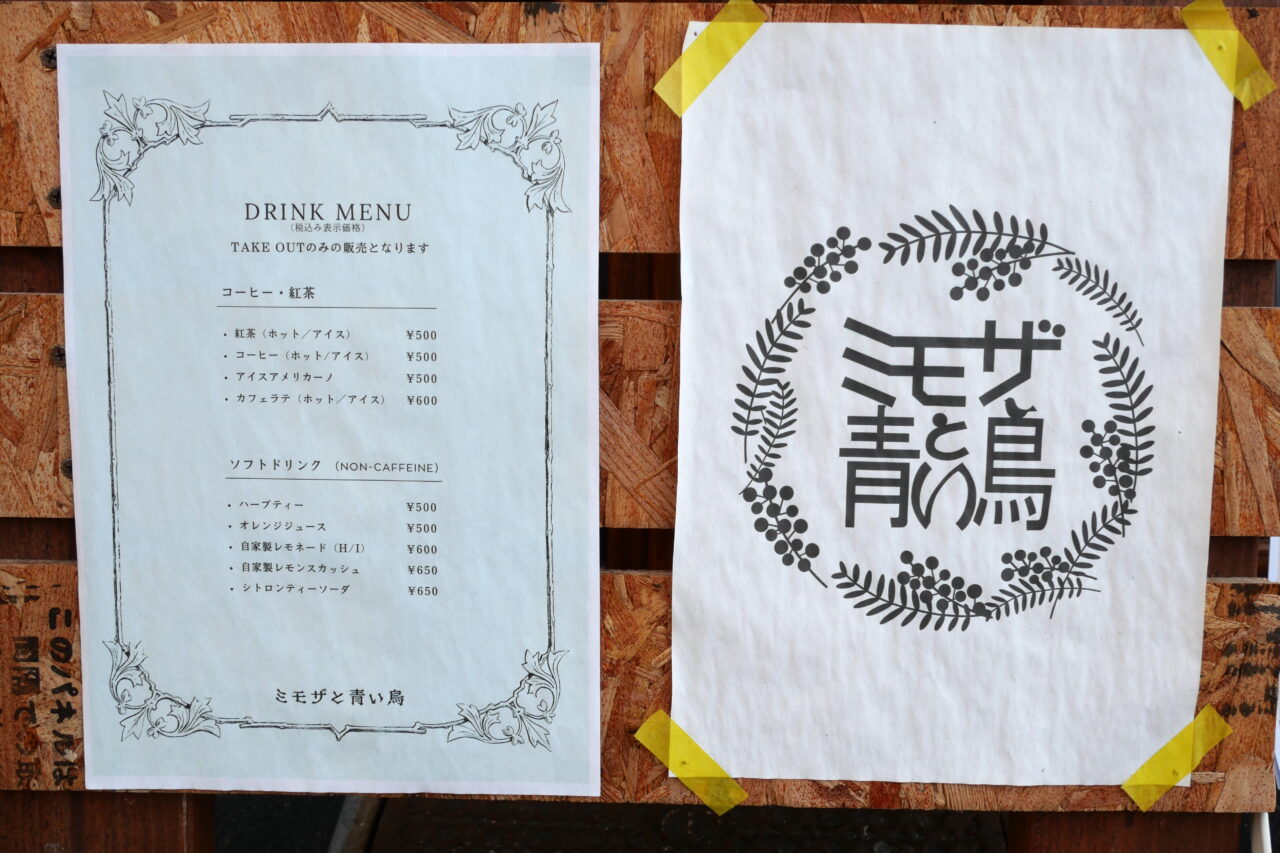 DRINK MENU
（税込み表示価格）
TAKE OUTのみの販売となります
コーヒー・紅茶
・紅茶（ホット／アイス） ¥500
・コーヒー（ホット/アイス） ¥500
・アイスアメリカーノ ¥500
・カフェラテ（ホット／アイス） ¥600
ソフトドリンク （NON-CAFFEINE）
・ハーブティー ¥500
・オレンジジュース ¥500
・自家製レモネード（H/I） ¥600
・自家製レモンスカッシュ ¥650
・シトロンティーソーダ ¥650
ミモザと青い鳥
ミモザ
と
青い鳥
このパネルは